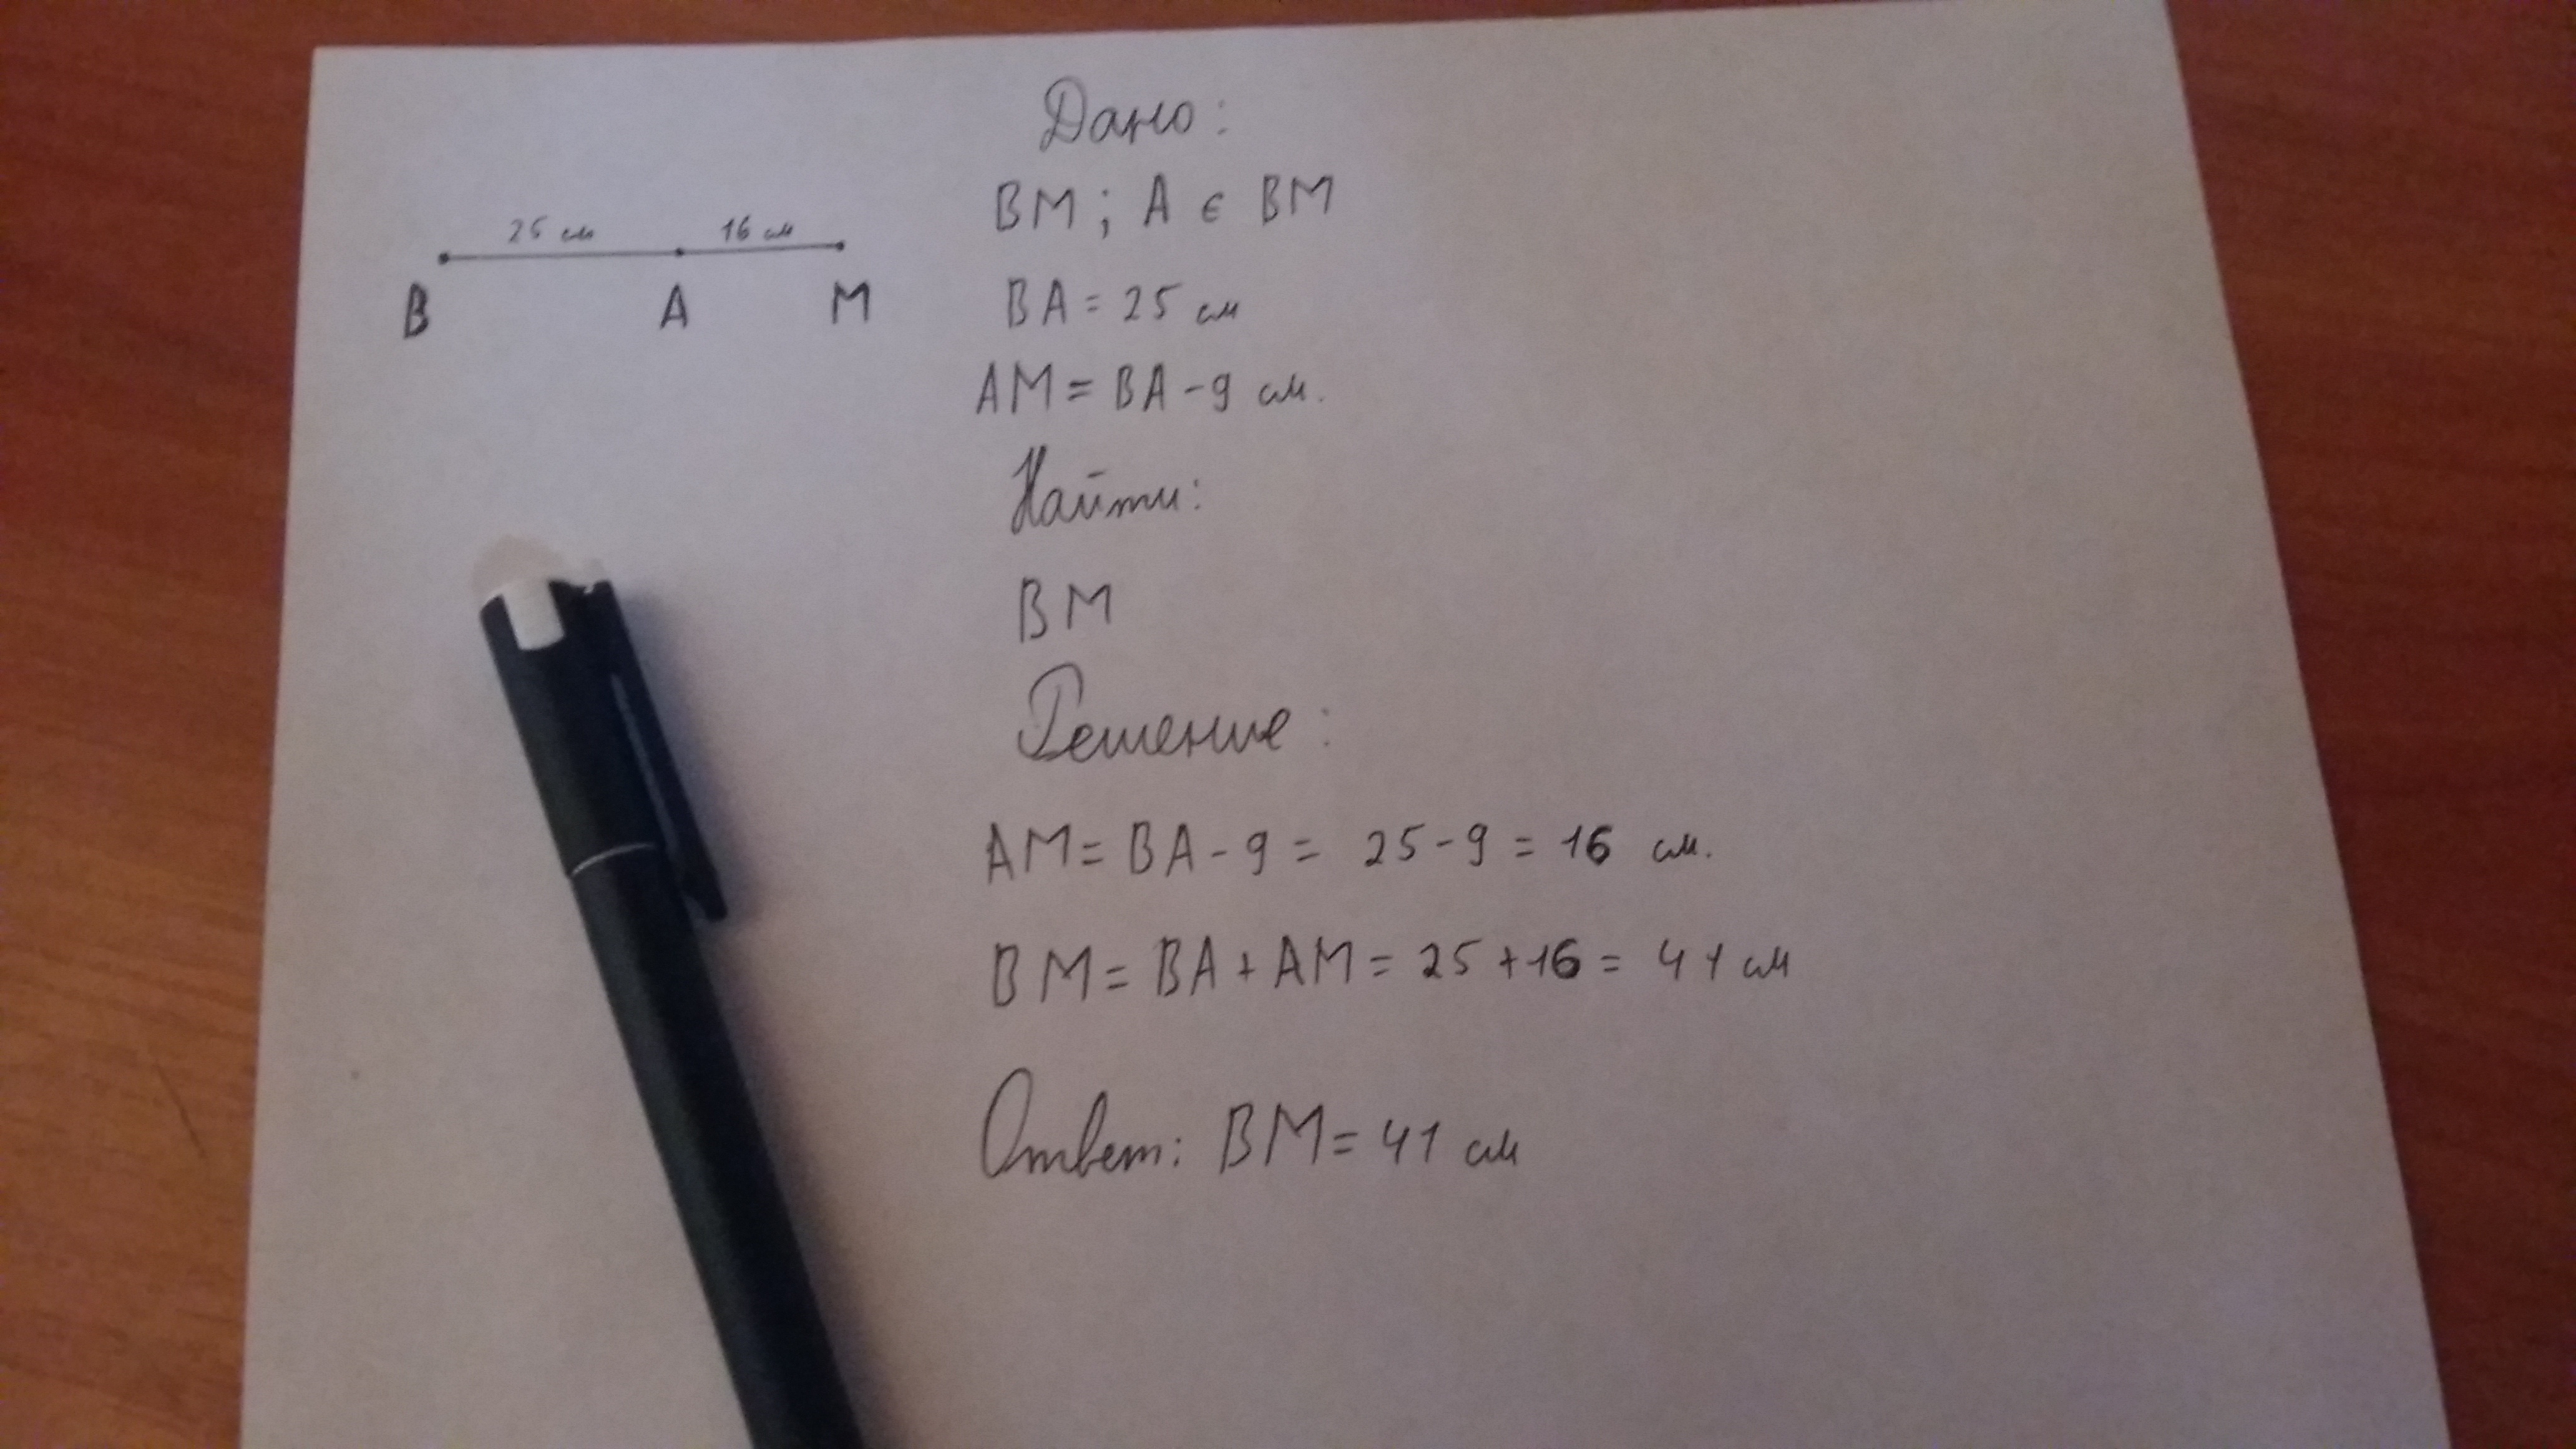 25 см 16 см
B A M
Дано:
BM; A ∈ BM
BA = 25 см
AM = BA - 9 см.
Найти:
BM
Решение:
AM = BA - 9 = 25 - 9 = 16 см.
BM = BA + AM = 25 + 16 = 41 см
Ответ: BM = 41 см